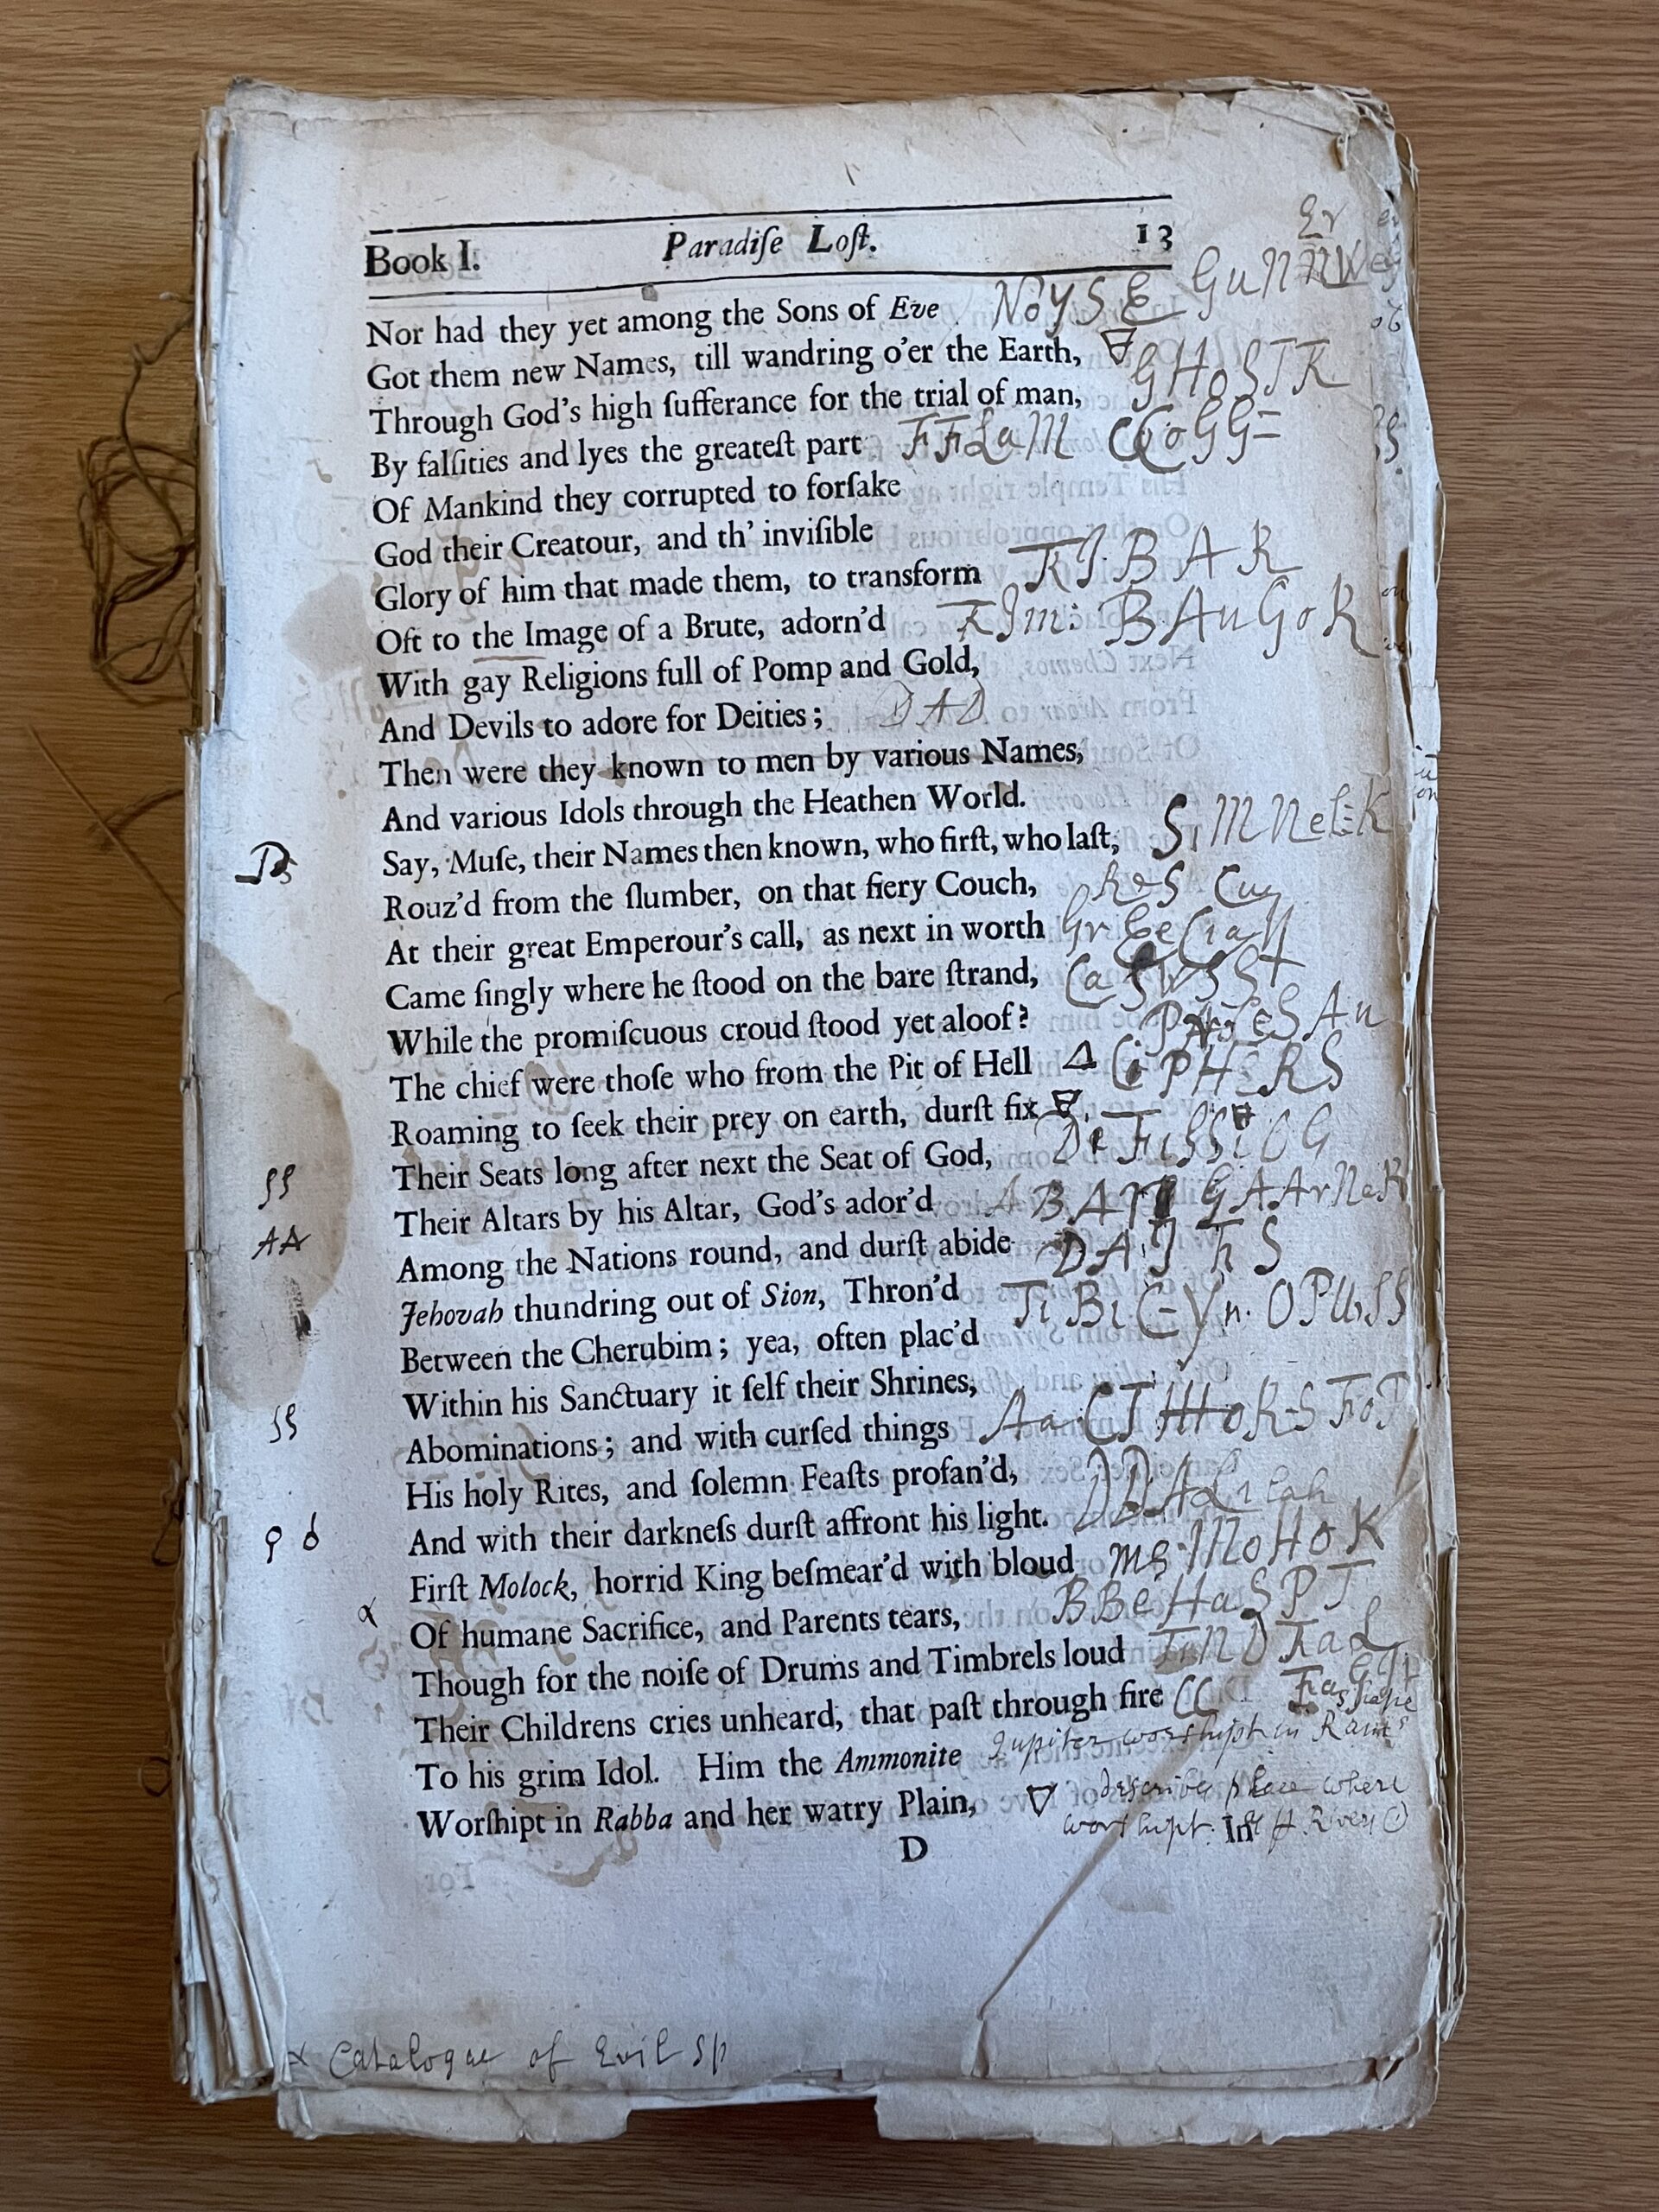 Book I. Paradiſe Loſt. 13
Nor had they yet among the Sons of Eve NoySE GuNN
Got them new Names, till wandring o'er the Earth,
Through God's high ſufferance for the trial of man, GHoSTR
By falſities and lyes the greateſt part FFLaM CCoGG=
Of Mankind they corrupted to forſake
God their Creatour, and th' inviſible
Glory of him that made them, to transform BAR
Oft to the Image of a Brute, adorn'd BAuGoR
With gay Religions full of Pomp and Gold,
And Devils to adore for Deities; DAD
Then were they known to men by various Names,
And various Idols through the Heathen World.
Say, Muſe, their Names then known, who firſt, who laſt,
Rouz'd from the ſlumber, on that fiery Couch,
At their great Emperour's call, as next in worth
Came ſingly where he ſtood on the bare ſtrand,
While the promiſcuous croud ſtood yet aloof?
The chief were thoſe who from the Pit of Hell CiPHERS
Roaming to ſeek their prey on earth, durſt fix
ſſ Their Seats long after next the Seat of God,
Their Altars by his Altar, God's ador'd
AA Among the Nations round, and durſt abide
Jehovah thundring out of Sion, Thron'd
Between the Cherubim; yea, often plac'd
Within his Sanctuary it ſelf their Shrines,
ſſ Abominations; and with curſed things
His holy Rites, and ſolemn Feaſts profan'd,
And with their darkneſs durſt affront his light.
Firſt Molock, horrid King beſmear'd with bloud MoHoK
α Of humane Sacrifice, and Parents tears, BBeHaSPT
Though for the noiſe of Drums and Timbrels loud
Their Childrens cries unheard, that paſt through fire CC
To his grim Idol. Him the Ammonite Jupiter worshipt in Rams shape
Worſhipt in Rabba and her watry Plain, describes place where
worshipt.
D In
α Catalogue of Evil Sp